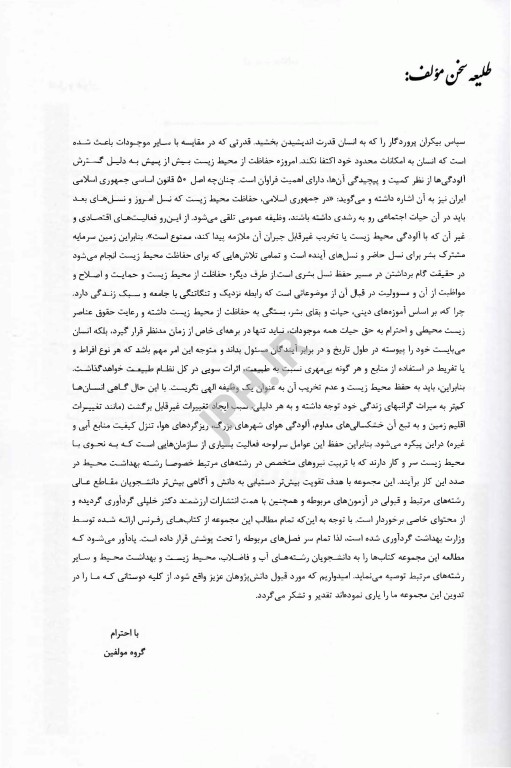 طلیعه سخن مؤلف:
سپاس بیکران پروردگار را که به انسان قدرت اندیشیدن بخشید. قدرتی که در مقایسه با سایر موجودات باعث شده
است که انسان به امکانات محدود خود اکتفا نکند. امروزه حفاظت از محیط زیست بیش از پیش به دلیل گسترش
آلودگی‌ها از نظر کمیت و پیچیدگی آن‌ها، دارای اهمیت فراوان است. چنان‌چه اصل ۵۰ قانون اساسی جمهوری اسلامی
ایران نیز به آن اشاره داشته و می‌گوید: «در جمهوری اسلامی، حفاظت محیط زیست که نسل امروز و نسل‌های بعد
باید در آن حیات اجتماعی رو به رشدی داشته باشند، وظیفه عمومی تلقی می‌شود. از این‌رو فعالیت‌های اقتصادی و
غیر آن که با آلودگی محیط زیست یا تخریب غیرقابل جبران آن ملازمه پیدا کند، ممنوع است». بنابراین زمین سرمایه
مشترک بشر برای نسل حاضر و نسل‌های آینده است و تمامی تلاش‌هایی که برای حفاظت محیط زیست انجام می‌شود
در حقیقت گام برداشتن در مسیر حفظ نسل بشری است.از طرف دیگر؛ حفاظت از محیط زیست و حمایت و اصلاح و
مواظبت از آن و مسوولیت در قبال آن از موضوعاتی است که رابطه نزدیک و تنگاتنگی با جامعه و سبک زندگی دارد.
چرا که، بر اساس آموزه‌های دینی، حیات و بقای بشر، بستگی به حفاظت از محیط زیست داشته و رعایت حقوق عناصر
زیست محیطی و احترام به حق حیات همه موجودات، نباید تنها در برهه‌ای خاص از زمان مدنظر قرار گیرد، بلکه انسان
می‌بایست خود را پیوسته در طول تاریخ و در برابر آیندگان مسئول بداند و متوجه این امر مهم باشد که هر نوع افراط و
یا تفریط در استفاده از منابع و هر گونه بی‌مهری نسبت به طبیعت، اثرات سویی در کل نظام طبیعت خواهدگذاشت.
بنابراین، باید به حفظ محیط زیست و عدم تخریب آن به عنوان یک وظیفه الهی نگریست. با این حال گاهی انسان‌ها
کم‌تر به میراث گرانبهای زندگی خود توجه داشته و به هر دلیلی، سبب ایجاد تغییرات غیرقابل برگشت (مانند تغییرات
اقلیم زمین و به تبع آن خشکسالی‌های مداوم، آلودگی هوای شهرهای بزرگ، ریزگردهای هوا، تنزل کیفیت منابع آبی و
غیره) دراین پیکره می‌شود. بنابراین حفظ این عوامل سرلوحه فعالیت بسیاری از سازمان‌هایی است که به نحوی با
محیط زیست سر و کار دارند که با تربیت نیروهای متخصص در رشته‌های مرتبط خصوصا رشته بهداشت محیط در
صدد این کار برآیند. این مجموعه با هدف تقویت بیش‌تر دستیابی به دانش و آگاهی بیش‌تر دانشجویان مقاطع عالی
رشته‌های مرتبط و قبولی در آزمون‌های مربوطه و همچنین با همت انتشارات ارزشمند دکتر خلیلی گردآوری گردیده و
از محتوای خاصی برخوردار است. با توجه به این‌که تمام مطالب این مجموعه از کتاب‌های رفرنس ارائه شده توسط
وزارت بهداشت گردآوری شده است، لذا تمام سر فصل‌های مربوطه را تحت پوشش قرار داده است. یادآور می‌شود که
مطالعه این مجموعه کتاب‌ها را به دانشجویان رشته‌های آب و فاضلاب، محیط زیست و بهداشت محیط و سایر
رشته‌های مرتبط توصیه می‌نماید. امیدواریم که مورد قبول دانش‌پژوهان عزیز واقع شود. از کلیه دوستانی که ما را در
تدوین این مجموعه ما را یاری نموده‌اند تقدیر و تشکر می‌گردد.
با احترام
گروه مولفین
JPH.IR